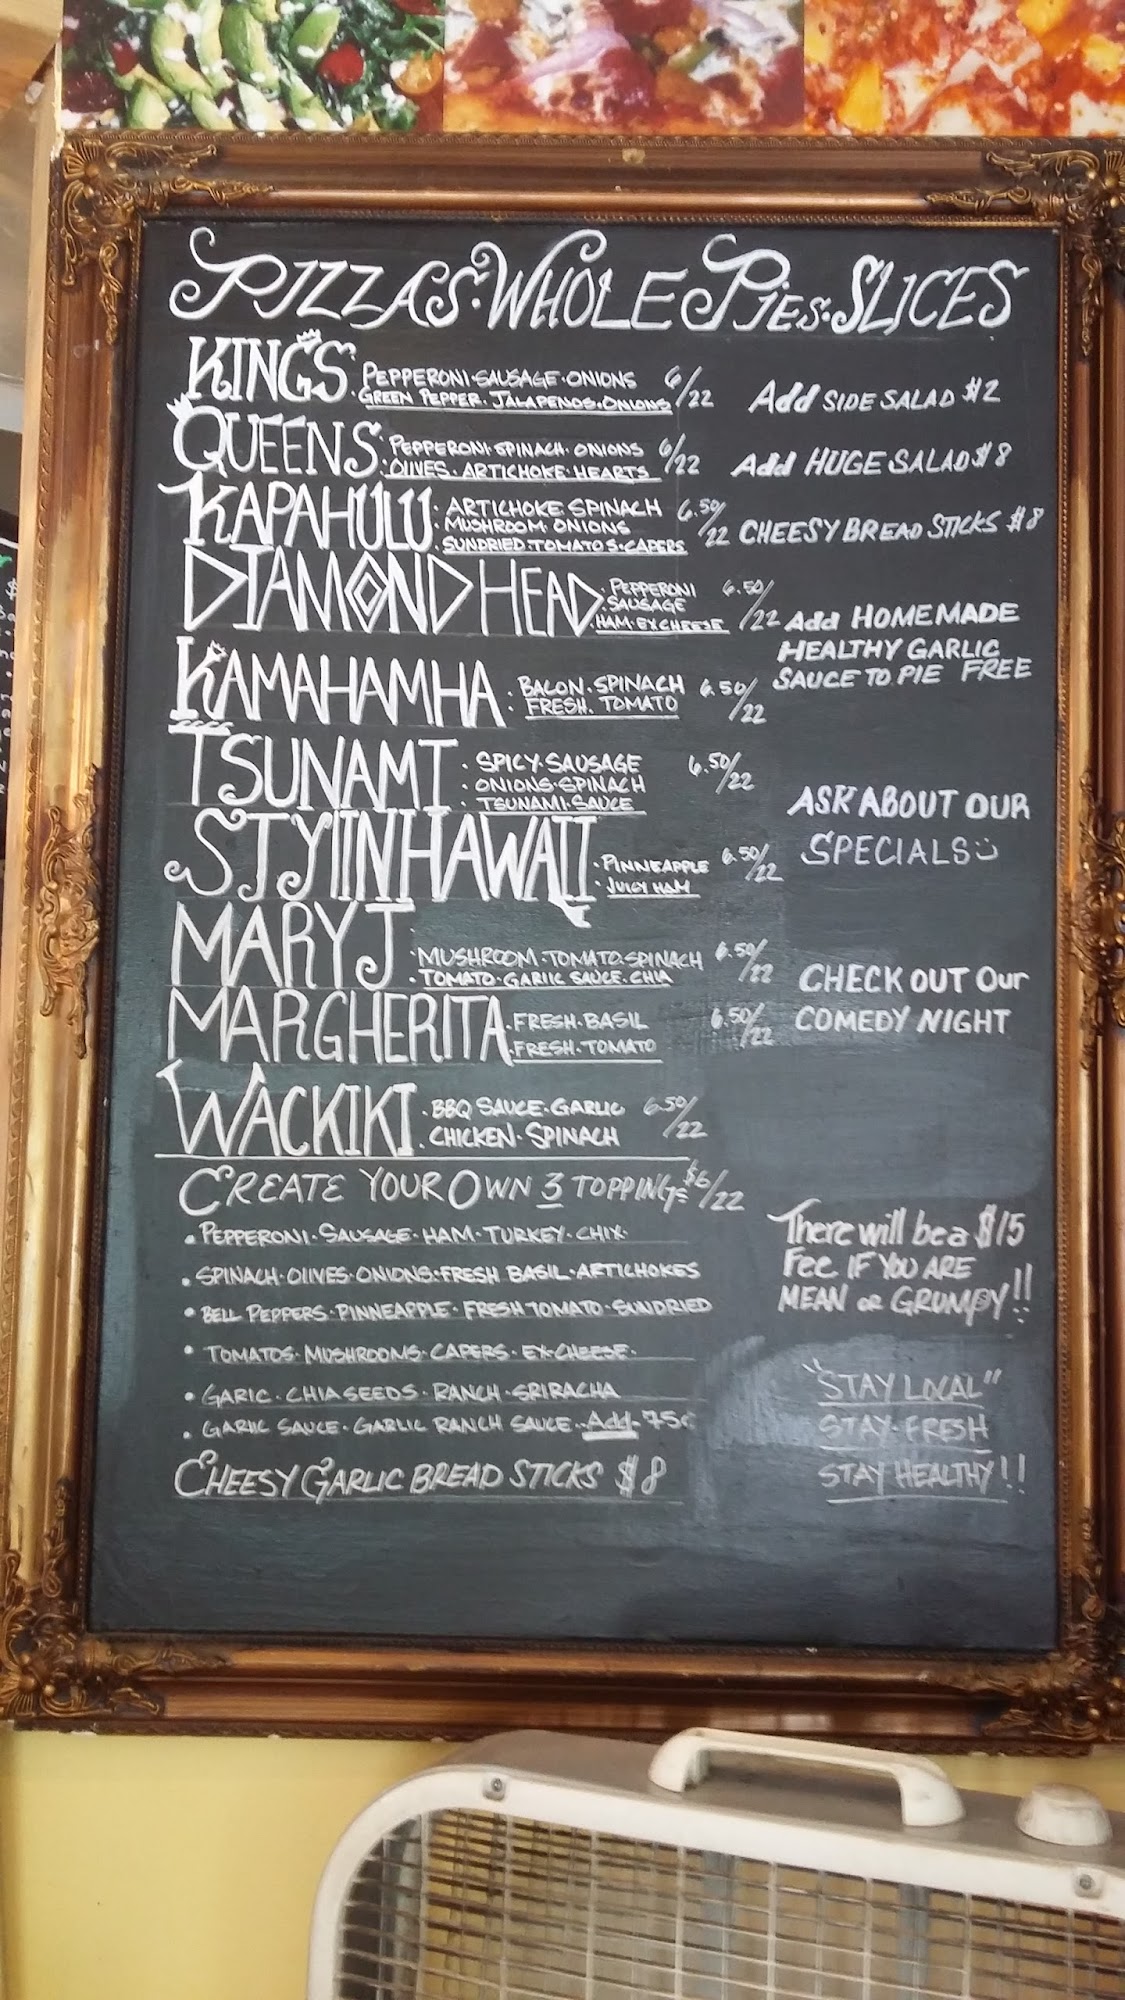 PIZZAS·WHOLE PIES·SLICES
KINGS PEPPERONI·SAUSAGE·ONIONS 6/22
GREEN PEPPER·JALAPENOS·ONIONS
Add SIDE SALAD $2
QUEENS PEPPERONI·SPINACH·ONIONS 6/22
OLIVES·ARTICHOKE·HEARTS
Add HUGE SALAD $8
KAPAHULU ·ARTICHOKE SPINACH 6.50/22
·MUSHROOM·ONIONS
·SUNDRIED·TOMATO'S·CAPERS
CHEESY BREAD STICKS $8
DIAMOND HEAD ·PEPPERONI 6.50/22
·SAUSAGE
·HAM·EX CHEESE
Add HOMEMADE
HEALTHY GARLIC
SAUCE TO PIE FREE
KAMAHAMHA ·BACON·SPINACH 6.50/22
·FRESH·TOMATO
TSUNAMI ·SPICY·SAUSAGE 6.50/22
·ONIONS·SPINACH
·TSUNAMI·SAUCE
ASK ABOUT OUR
SPECIALS
STYIINHAWAII ·PINNEAPPLE 6.50/22
·JUICY HAM
MARY J ·MUSHROOM·TOMATO·SPINACH 6.50/22
·TOMATO·GARLIC SAUCE·CHIA
CHECK OUT Our
COMEDY NIGHT
MARGHERITA ·FRESH·BASIL 6.50/22
·FRESH·TOMATO
WACKIKI ·BBQ SAUCE·GARLIC 6.50/22
·CHICKEN·SPINACH
CREATE YOUR OWN 3 TOPPINGS $6/22
·PEPPERONI·SAUSAGE·HAM·TURKEY·CHIX·
·SPINACH·OLIVES·ONIONS·FRESH BASIL·ARTICHOKES
·BELL PEPPERS·PINNEAPPLE·FRESH TOMATO·SUNDRIED
·TOMATOS·MUSHROOMS·CAPERS·EX·CHEESE·
·GARIC·CHIA SEEDS·RANCH·SRIRACHA
·GARLIC SAUCE·GARLIC RANCH SAUCE··Add·75¢
CHEESY GARLIC BREAD STICKS $8
There will be a $15
Fee IF YOU ARE
MEAN or GRUMPY!!
"STAY LOCAL"
STAY·FRESH
STAY HEALTHY!!